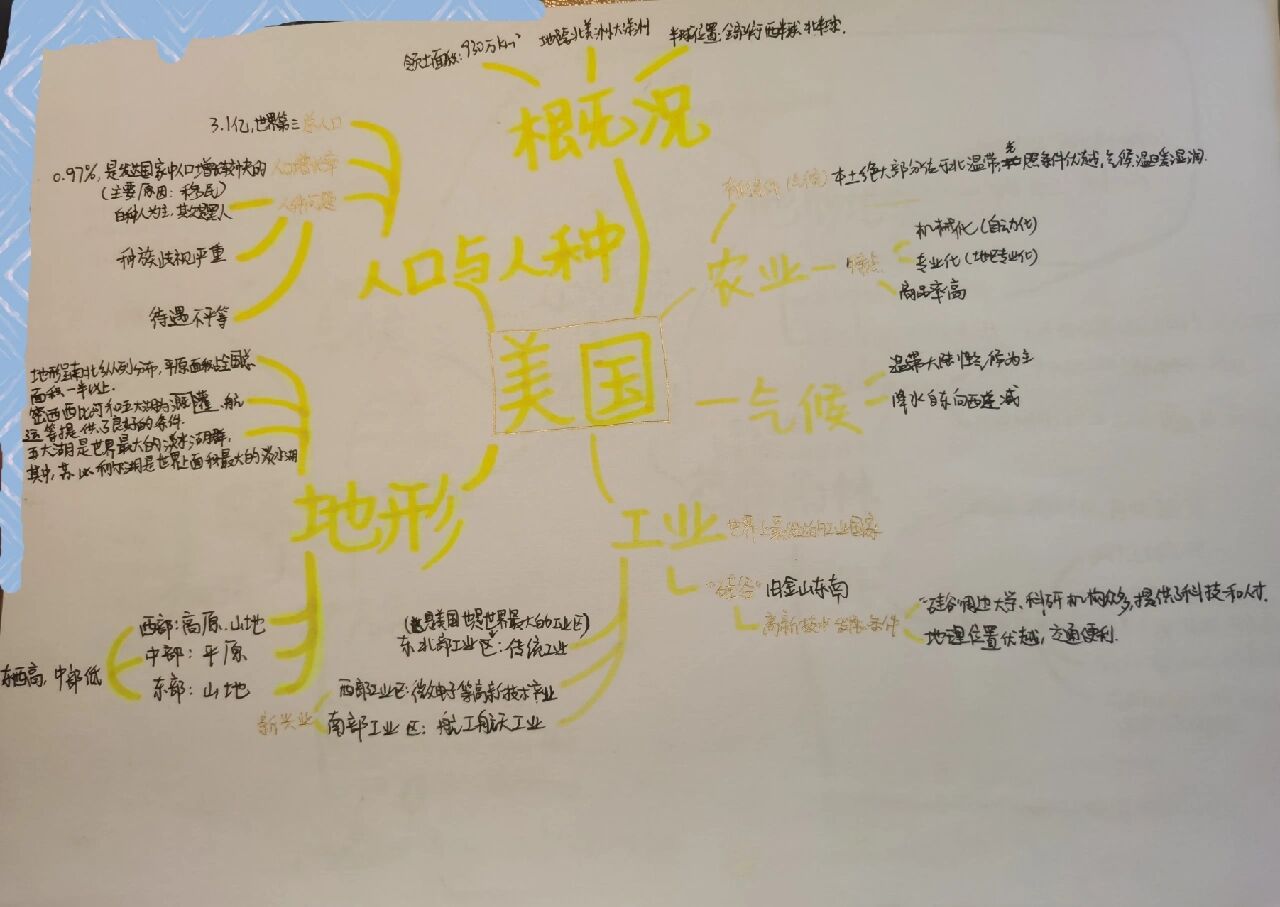 领土面积：930万km²
地跨北美洲大洋洲
半球位置：全部位于西半球 北半球.
概况
3.1亿，世界第三 总人口
0.97%，是发达国家中人口增长较快的 人口增长率
（主要原因：移民）
白种人为主，其次是黑人 人种问题
种族歧视严重
待遇不平等
人口与人种
(气候) 本土绝大部分位于北温带，光照条件优越，气候温暖湿润.
农业 特点
机械化（自动化）
专业化（地区专业化）
商品率高
美国
气候
温带大陆性气候为主
降水自东向西递减
地形呈南北纵列分布，平原面积占全国总
面积一半以上.
密西西比河和五大湖为灌溉、航
运等提供了良好的条件.
五大湖是世界最大的淡水湖群，
其中，苏必利尔湖是世界上面积最大的淡水湖
地形
西部：高原 山地
中部：平原
东部：山地
东西高，中部低
工业
世界上最发达的工业国家
“硅谷” 旧金山东南
高新技术 条件
硅谷周边大学、科研机构众多，提供了科技和人才.
地理位置优越，交通便利.
（是美国也是世界最大的工业区）
东北部工业区：传统工业
西部工业区：微电子等高新技术产业
新兴业 南部工业区：航工航天工业